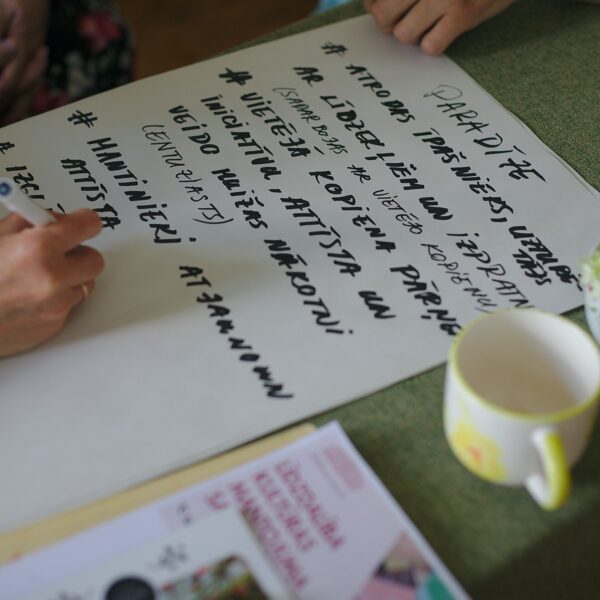 PARADĪZE
# ATRODAS ĪPAŠNIEKS,
TĀJS
AR LĪDZEKĻIEM UN IZPRATN
(SADARBOJAS AR VIETĒJO KOPIENU)
# VIETĒJĀ KOPIENA PĀRŅE
INICIATĪVU, ATTĪSTA UN
VEIDO MUIŽAS NĀKOTNI
(ENTUZIASTS)
# MANTINIEKI ATJAUNO UN
ATTĪSTA
LĪDZDALĪBA
KULTŪRAS
MANTOJUMA